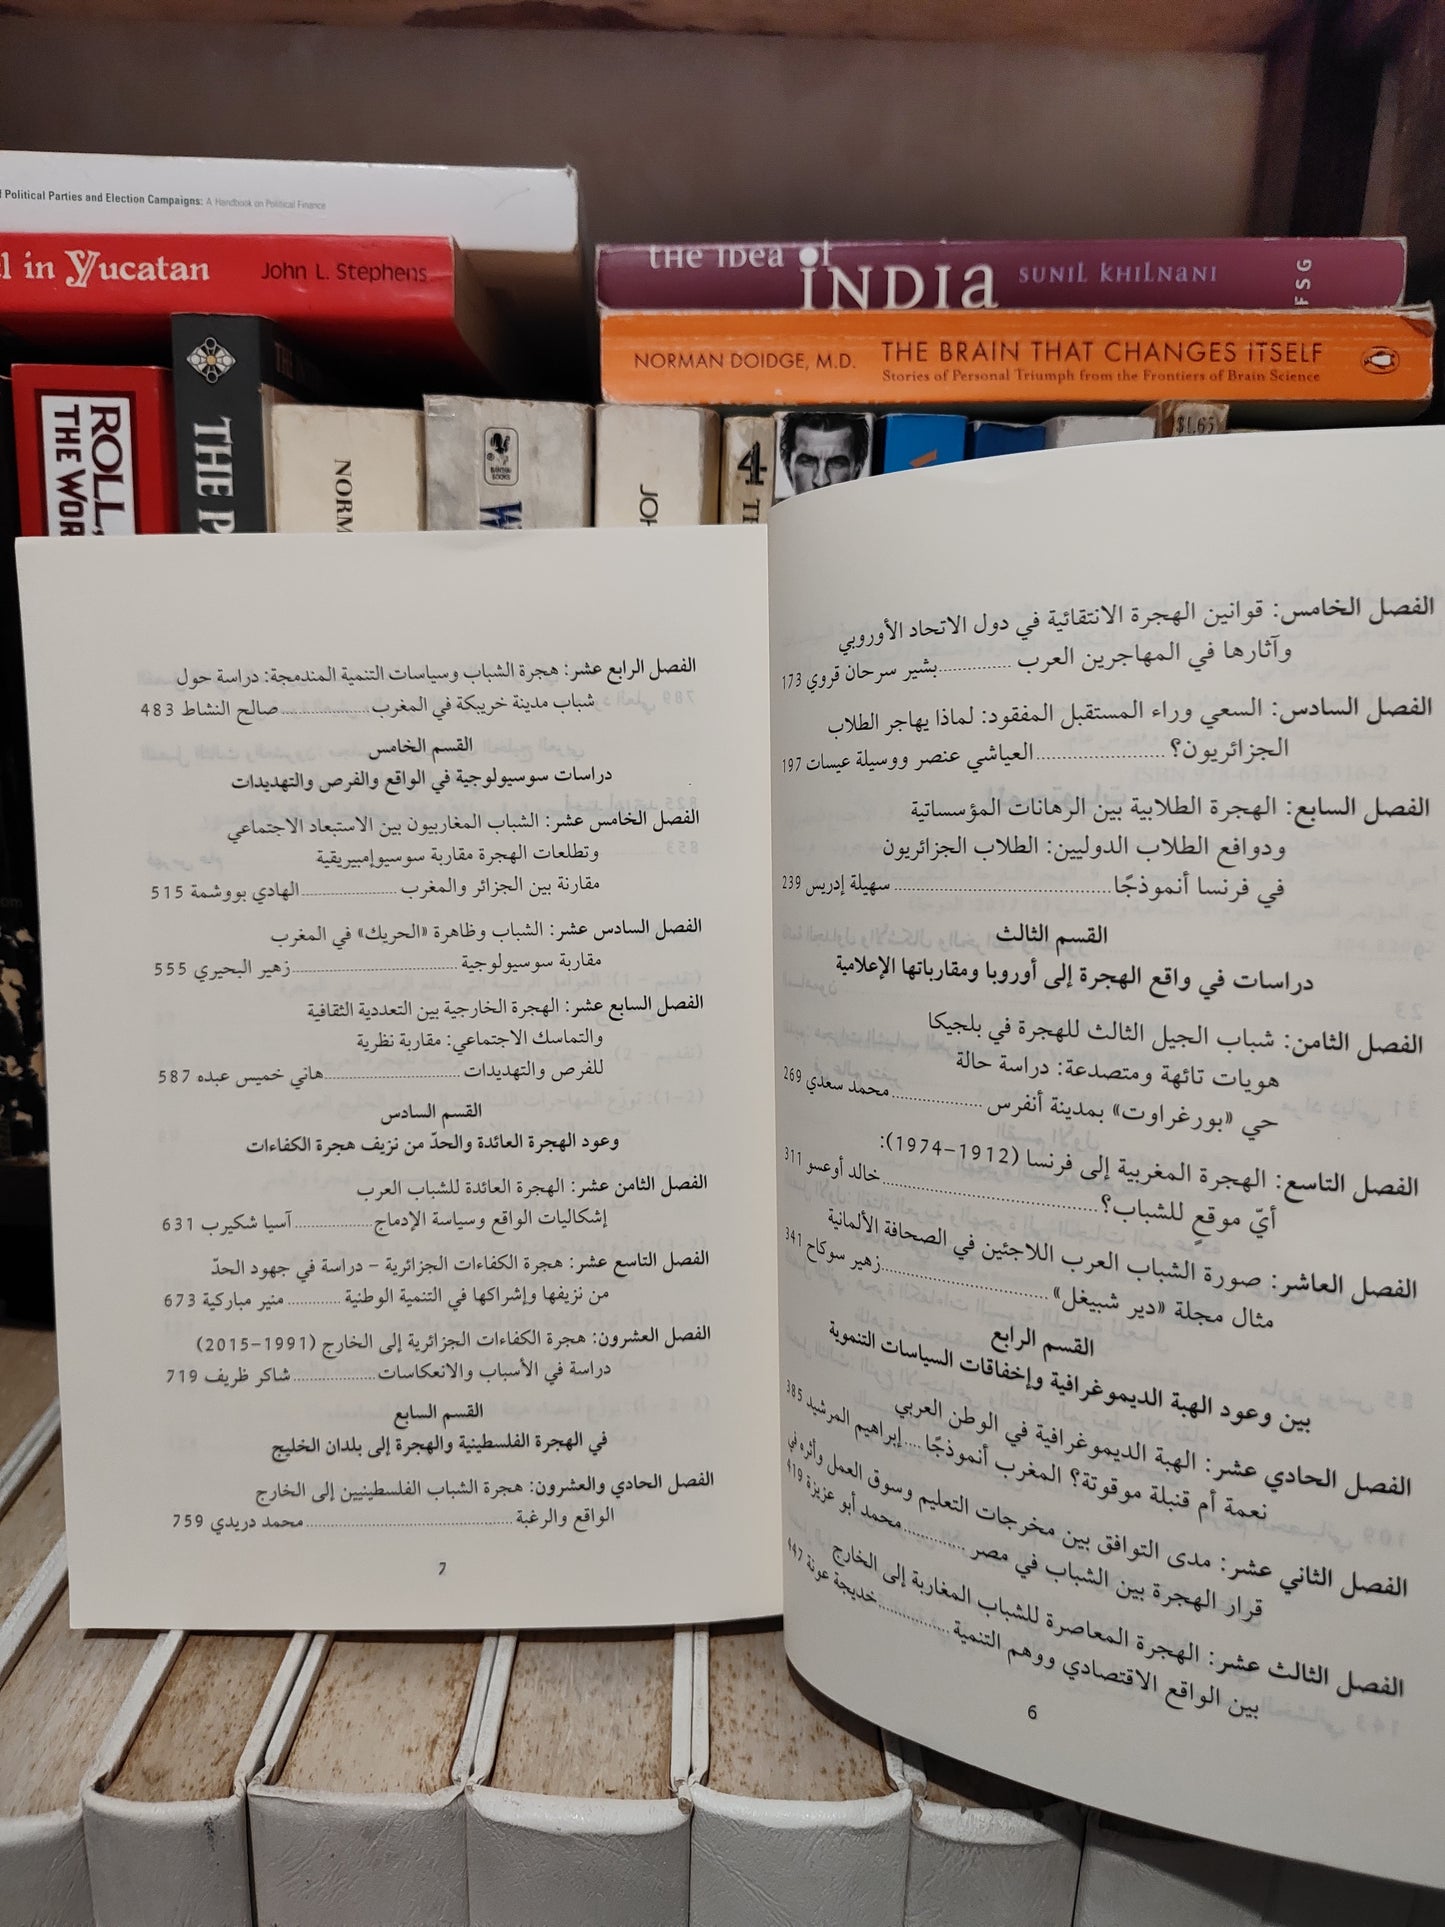 f Political Parties and Election Campaigns: A Handbook on Political Finance
l in Yucatan John L. Stephens
the idea of
INDIA SUNIL KHILNANI FSG
NORMAN DOIDGE, M.D. THE BRAIN THAT CHANGES ITSELF
Stories of Personal Triumph from the Frontiers of Brain Science
ROLL
THE WOR
THE P
NORM
BANTAM BOOKS
W
JOH
4
TH
$1.65
الفصل الخامس: قوانين الهجرة الانتقائية في دول الاتحاد الأوروبي
وآثارها في المهاجرين العرب ............. بشير سرحان قروي 173
الفصل السادس: السعي وراء المستقبل المفقود: لماذا يهاجر الطلاب
الجزائريون؟ ...................... العياشي عنصر ووسيلة عيسات 197
الفصل السابع: الهجرة الطلابية بين الرهانات المؤسساتية
ودوافع الطلاب الدوليين: الطلاب الجزائريون
في فرنسا أنموذجًا ...................................... سهيلة إدريس 239
القسم الثالث
دراسات في واقع الهجرة إلى أوروبا ومقارباتها الإعلامية
الفصل الثامن: شباب الجيل الثالث للهجرة في بلجيكا
هويات تائهة ومتصدعة: دراسة حالة
حي «بورغراوت» بمدينة أنفرس ................ محمد سعدي 269
الفصل التاسع: الهجرة المغربية إلى فرنسا (1912-1974):
أيّ موقعٍ للشباب؟ ...................................... خالد أوعسو 311
الفصل العاشر: صورة الشباب العرب اللاجئين في الصحافة الألمانية
مثال مجلة «دير شبيغل» .............................. زهير سوكاح 341
القسم الرابع
بين وعود الهبة الديموغرافية وإخفاقات السياسات التنموية
الفصل الحادي عشر: الهبة الديموغرافية في الوطن العربي
نعمة أم قنبلة موقوتة؟ المغرب أنموذجًا .... إبراهيم المرشيد 385
الفصل الثاني عشر: مدى التوافق بين مخرجات التعليم وسوق العمل وأثره في
قرار الهجرة بين الشباب في مصر ............ محمد أبو عزيزة 419
الفصل الثالث عشر: الهجرة المعاصرة للشباب المغاربة إلى الخارج
بين الواقع الاقتصادي ووهم التنمية ............... خديجة عونة 447
6
الفصل الرابع عشر: هجرة الشباب وسياسات التنمية المندمجة: دراسة حول
شباب مدينة خريبكة في المغرب ................. صالح النشاط 483
القسم الخامس
دراسات سوسيولوجية في الواقع والفرص والتهديدات
الفصل الخامس عشر: الشباب المغاربيون بين الاستبعاد الاجتماعي
وتطلعات الهجرة مقاربة سوسيوإمبيريقية
مقارنة بين الجزائر والمغرب ................... الهادي بووشمة 515
الفصل السادس عشر: الشباب وظاهرة «الحريك» في المغرب
مقاربة سوسيولوجية ................................ زهير البحيري 555
الفصل السابع عشر: الهجرة الخارجية بين التعددية الثقافية
والتماسك الاجتماعي: مقاربة نظرية
للفرص والتهديدات ........................... هاني خميس عبده 587
القسم السادس
وعود الهجرة العائدة والحدّ من نزيف هجرة الكفاءات
الفصل الثامن عشر: الهجرة العائدة للشباب العرب
إشكاليات الواقع وسياسة الإدماج ............... آسيا شكيرب 631
الفصل التاسع عشر: هجرة الكفاءات الجزائرية – دراسة في جهود الحدّ
من نزيفها وإشراكها في التنمية الوطنية ........... منير مباركية 673
الفصل العشرون: هجرة الكفاءات الجزائرية إلى الخارج (1991-2015)
دراسة في الأسباب والانعكاسات ................ شاكر ظريف 719
القسم السابع
في الهجرة الفلسطينية والهجرة إلى بلدان الخليج
الفصل الحادي والعشرون: هجرة الشباب الفلسطينيين إلى الخارج
الواقع والرغبة ......................................... محمد دريدي 759
7